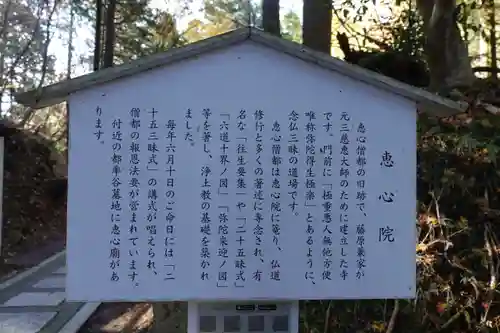 恵心院
恵心僧都の旧跡で、藤原兼家が
元三慈恵大師のために建立した寺
です。門前に「極重悪人無他方便
唯称弥陀得生極楽」とあるように、
念仏三昧の道場です。
恵心僧都は恵心院に籠り、仏道
修行と多くの著述に専念され、有
名な「往生要集」や「二十五昧式」
「六道十界ノ図」「弥陀来迎ノ図」
等を著し、浄土教の基礎を築かれ
ました。
毎年六月十日のご命日には「二
十五三昧式」の講式が唱えられ、
僧都の報恩法要が営まれています。
付近の都率谷墓地に恵心廟があ
ります。